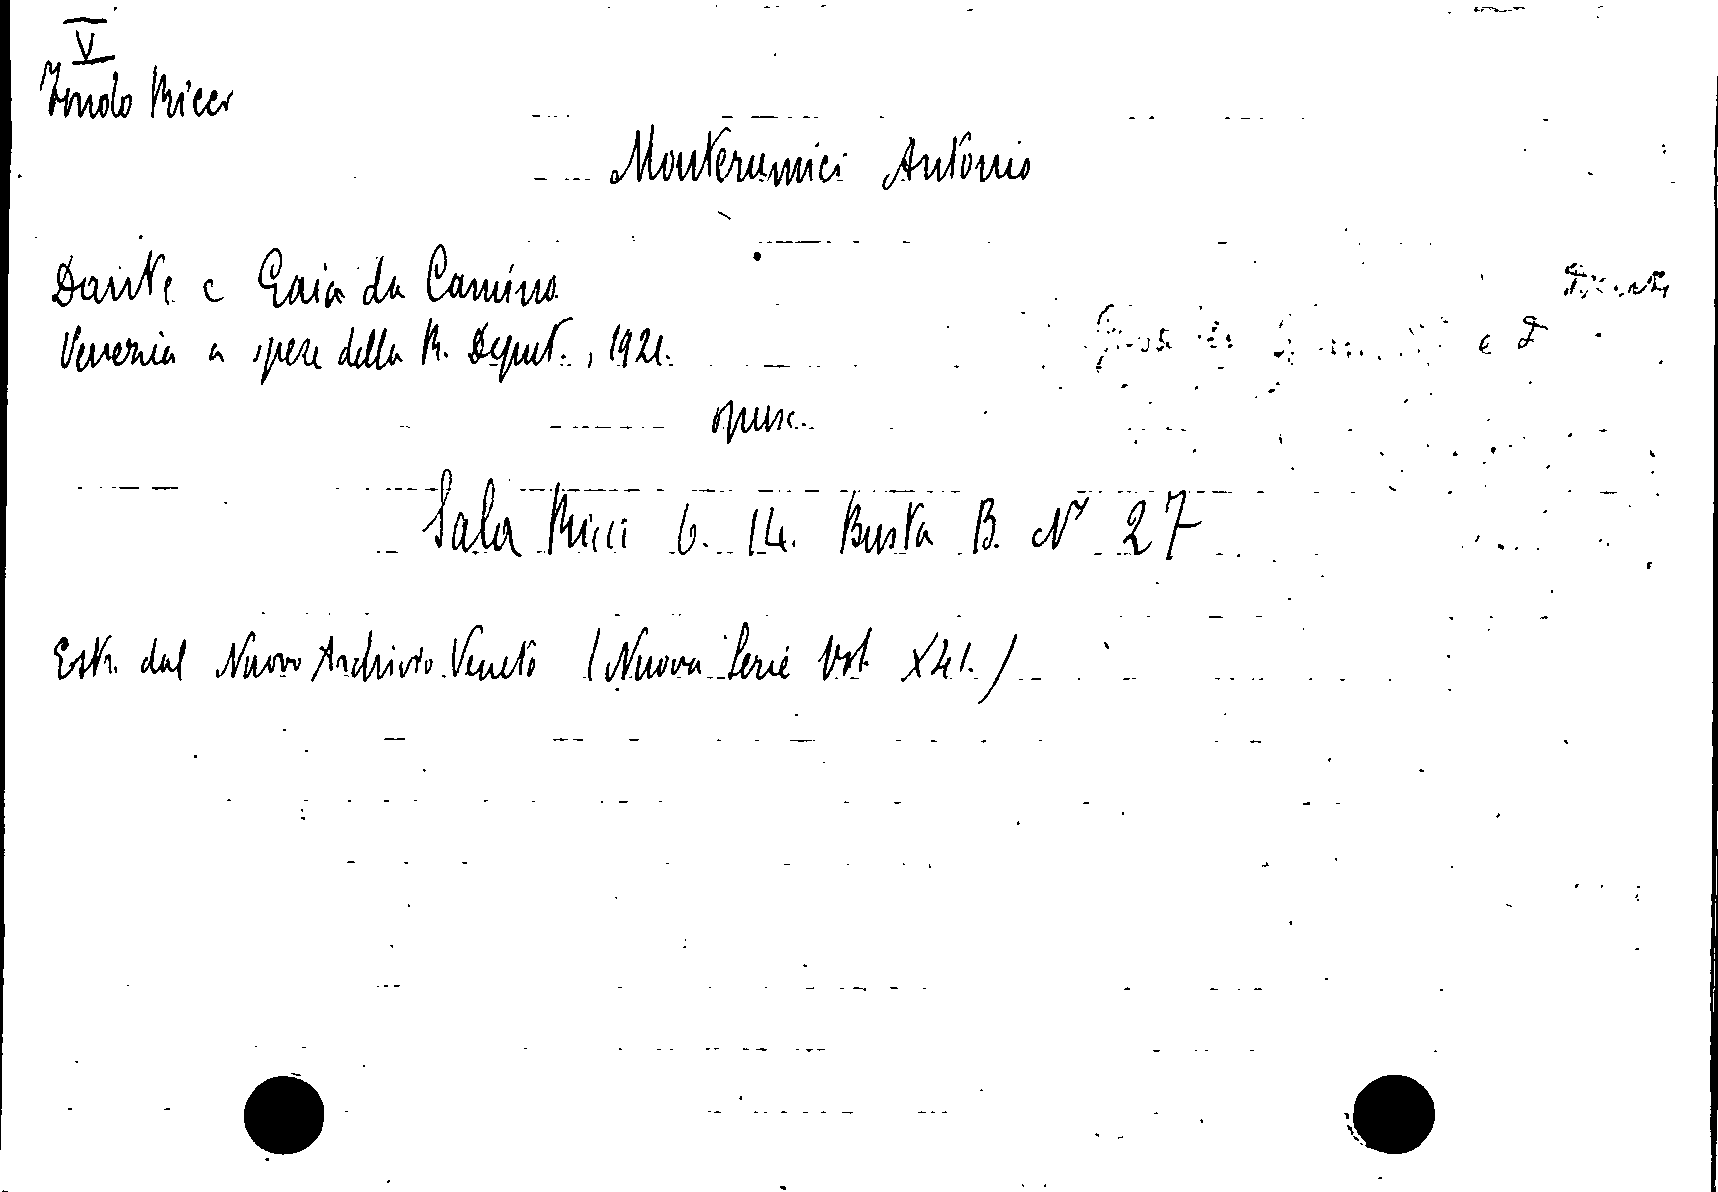 V
Fondo Ricci
Monterumici Antonio
Dante e Gaia da Camino
Dante
Venezia a spese della R. Deput., 1921.
e D
opusc.
Sala Ricci 6. 14. Busta B. N° 27
Estr. dal Nuovo Archivio Veneto (Nuova Serie Vol. X41.)